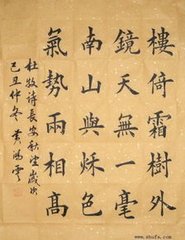 樓倚霜樹外
鏡天無一毫
南山與秋色
氣勢兩相高
杜牧诗長安秋望歲次
己丑仲冬 黄鴻雲
www.shufa.com